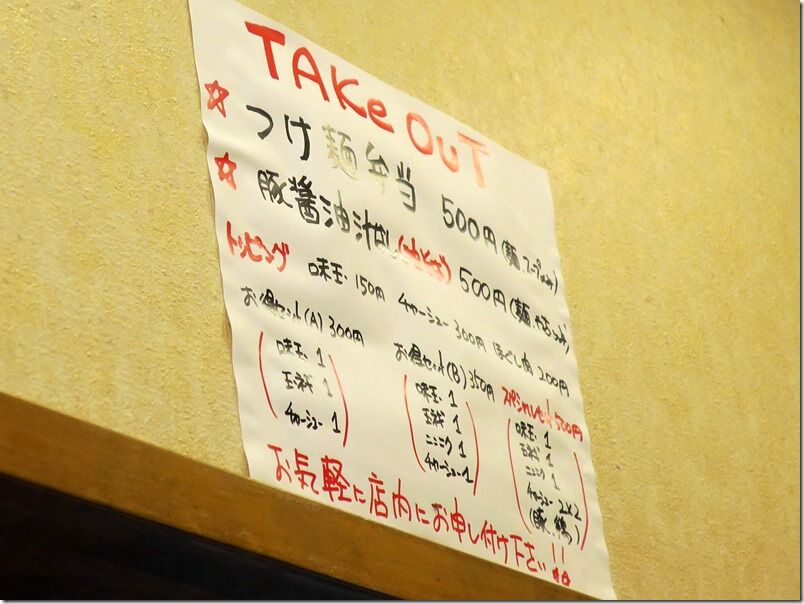 TAKe OUT
☆ つけ麺弁当 500円(麺、スープのみ)
☆ 豚醤油汁なし 500円(麺、
トッピング 味玉 150円 チャーシュー 300円 ほぐし肉 200円
お得セット(A) 300円
味玉 1
玉ネギ 1
チャーシュー 1
お得セット(B) 350円
味玉 1
玉ネギ 1
ニンニク 1
チャーシュー 1
スペシャルセット 500円
味玉 1
玉ネギ 1
ニンニク 1
チャーシュー 2×2
(豚、鶏)
お気軽に店内にお申し付け下さい!!